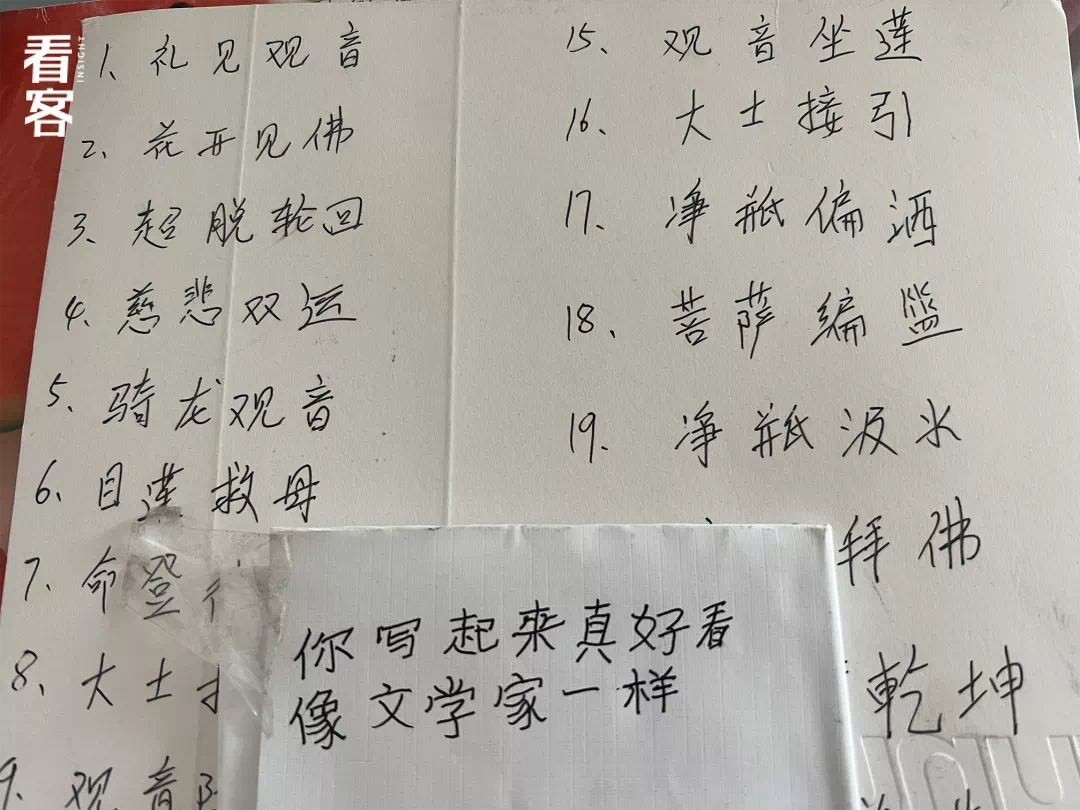 看客
INSIGHT
1、礼见观音
2、花开见佛
3、超脱轮回
4、慈悲双运
5、骑龙观音
6、目莲救母
7、命登
8、大士
9、观音
15、观音坐莲
16、大士接引
17、净瓶偏洒
18、菩萨编篮
19、净瓶汲水
拜佛
乾坤
你写起来真好看
像文学家一样